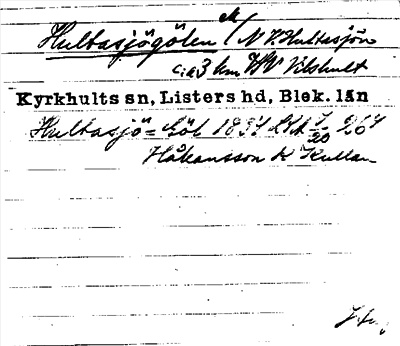 Hultasjögölen N V. Hultasjön
c:a 3 km NV Vilshult
Kyrkhults sn, Listers hd, Blek. län
Hultasjö=Göl 1834 20
Håkansson K Kullan